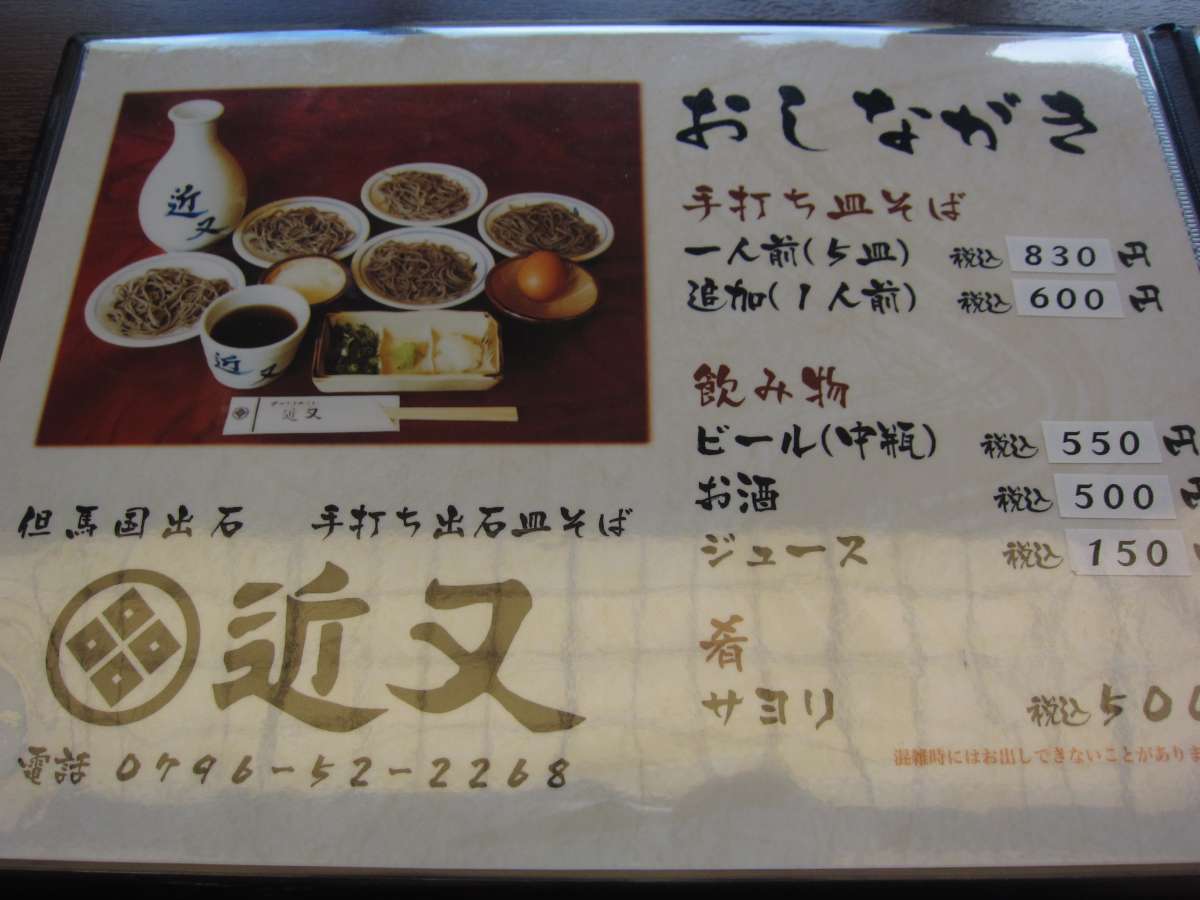 おしながき
手打ち皿そば
一人前(5皿) 税込 830 円
追加(1人前) 税込 600 円
飲み物
ビール(中瓶) 税込 550 円
お酒 税込 500 円
ジュース 税込 150
肴
サヨリ 税込 500
混雑時にはお出しできないことがありま
近又
近又
近又
但馬国出石 手打ち出石皿そば
近又
電話 0796-52-2268